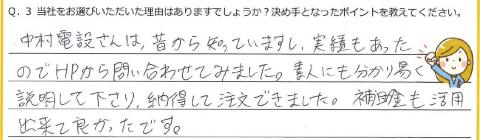 Q. 3 当社をお選びいただいた理由はありますでしょうか？決め手となったポイントを教えてください。
中村電設さんは,昔から知っていますし,実績もあった
のでHPから問い合わせてみました。素人にも分かり易く
説明して下さり,納得して注文できました。補助金も活用
出来て良かったです。